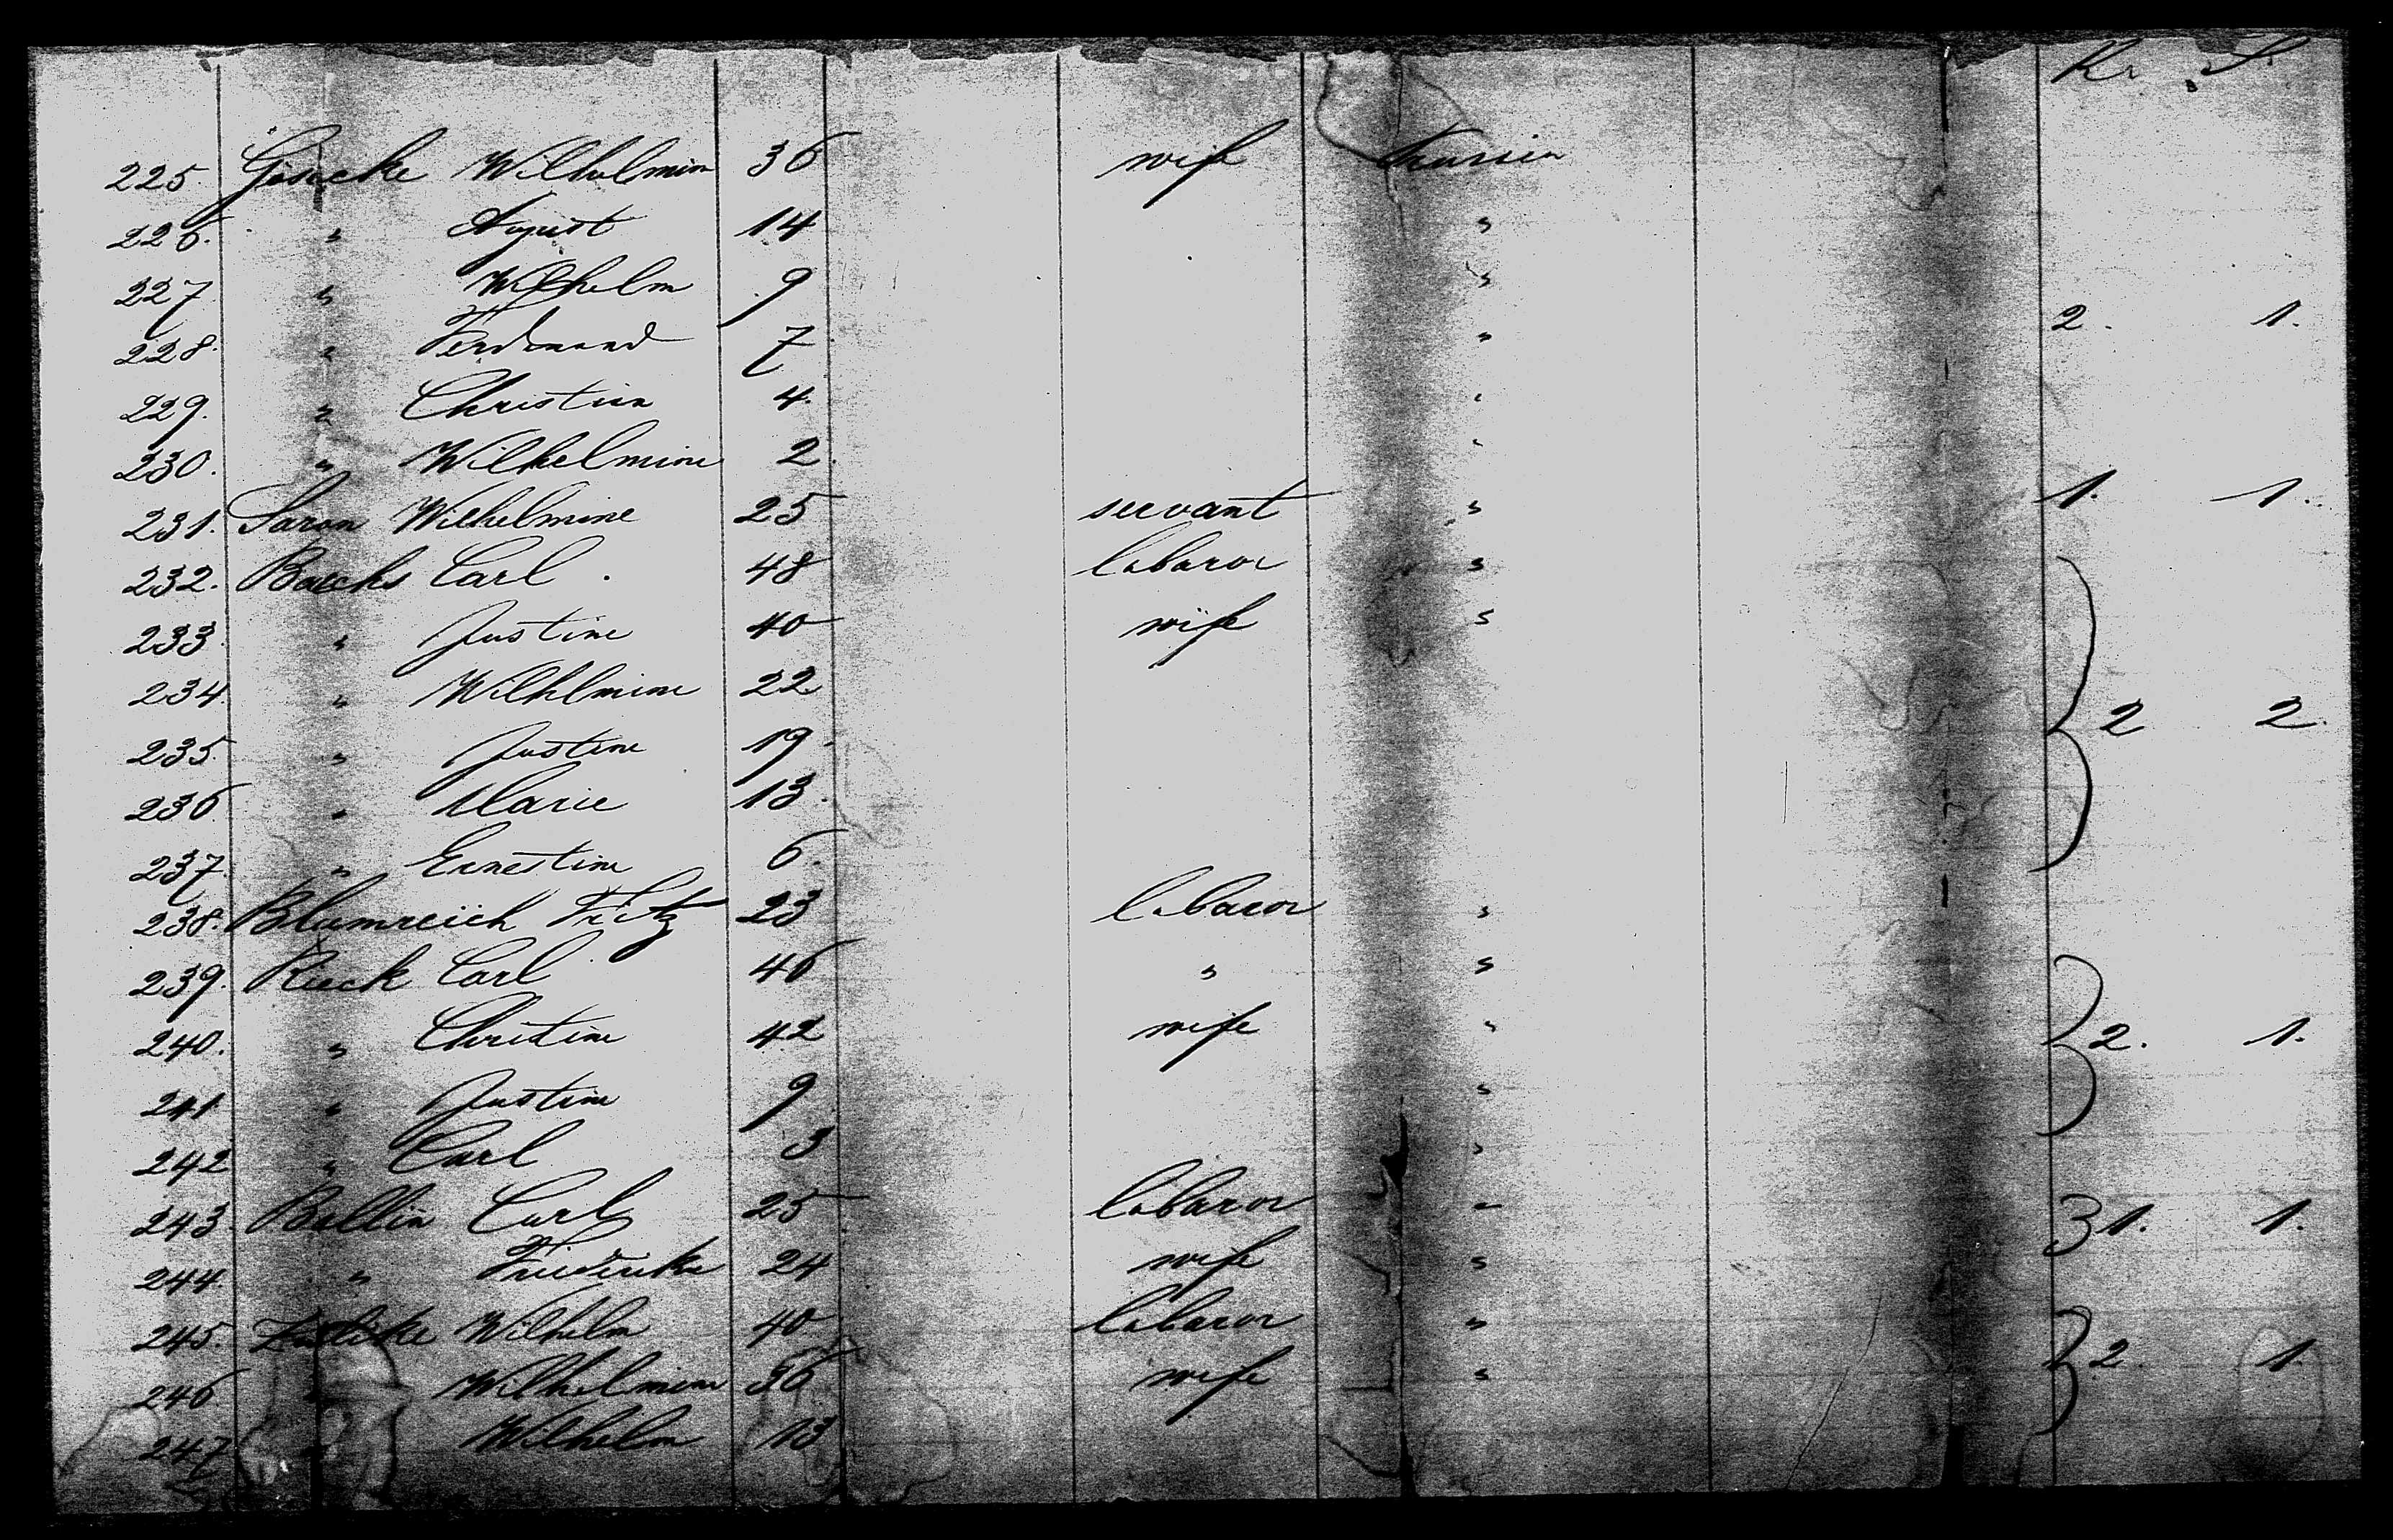 K. S.
225. Gesecke Wilhelmine 36 wife Prussia
226. " August 14 "
227 " Wilhelm 9 "
228. " Ferdinand 7 " 2. 1.
229. " Christian 4. "
230. " Wilhelmine 2 "
231. Saron Wilhelmine 25 servant " 1. 1.
232. Baechs Carl 48 labaror "
233 " Justine 40 wife "
234 " Wilhlmine 22 2 2.
235 " Justine 19.
236 " Marie 13.
237 " Ernestine 6.
238. Blumreich Fritz 23 labaror "
239. Rieck Carl 46 " "
240. " Christine 42 wife " 2. 1.
241 " Justine 9 "
242 " Carl 3 "
243 Bellin Carl 25 labaror " 1. 1.
244. " Friederike 24 wife "
245. Wilhelm 40 labaror " 2. 1.
246 " Wilhelmine 36 wife "
247 " Wilhelm 13